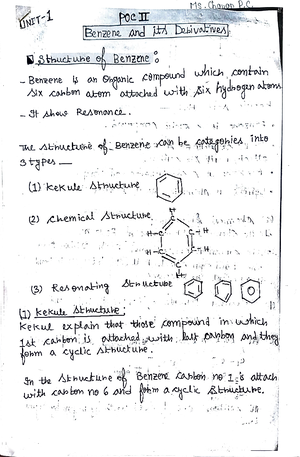 UNIT-1
Ms. Chawan P.C.
POC II
Benzene and its Derivatives
Structure of Benzene :
- Benzene is an organic compound which contain
six carbon atom attached with six hydrogen atoms
- It show Resonance.
The structure of Benzene can be categories into
3 types —
(1) Kekule structure
(2) Chemical Structure
H
H-C C-H
H-C C-H
C
H
(3) Resonating Structure
(1) Kekule Structure :
Kekul explain that those compound in which
1st carbon is attached with last carbon and they
form a cyclic structure.
In the structure of Benzene carbon no 1 is attach
with carbon no 6 and form a cyclic structure.